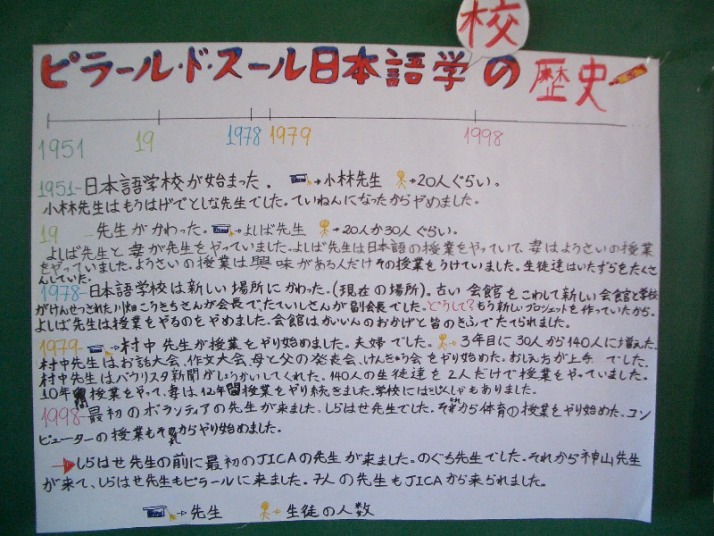 ピラール・ド・スール日本語学校の歴史
1951 19 1978 1979 1998
1951-日本語学校が始まった。 →小林先生 →20人ぐらい。
小林先生はもうはげでとしな先生でした。ていねんになったからやめました。
19 -先生がかわった。 →よしば先生 →20人か30人ぐらい。
よしば先生と妻が先生をやっていました。よしば先生は日本語の授業をやっていて、妻はようさいの授業
をやっていました。ようさいの授業は興味がある人だけその授業をうけていました。生徒達はいたずらをたくさ
んしていた。
1978-日本語学校は新しい場所にかわった。(現在の場所)。古い会館をこわして新しい会館と学校
がけんせつされた川畑こうきちさんが会長で、たていしさんが副会長でした。どうして?もう新しいプロジェクトを作っていたから。
よしば先生は授業をやるのをやめました。会館はかいいんのおかげと皆のきふでたてられました。
1979- →村中先生が授業をやり始めました。夫婦でした。 →3年目に30人から140人に増えた。
村中先生はお話大会、作文大会、母と父の発表会、けんきゅう会をやり始めた。おしえ方が上手でした。
村中先生はパウリスタ新聞がしょうかいしてくれた。140人の生徒達を2人だけで授業をやっていました。
10年間授業をやって、妻は12年間授業をやり続きました。学校にはきしゅくしゃもありました。
1998-最初のボランティアの先生が来ました。しらはせ先生でした。それから体育の授業をやり始めた。コン
ピューターの授業もそれからやり始めました。
→しらはせ先生の前に最初のJICAの先生が来ました。のぐち先生でした。それから神山先生
が来て、しらはせ先生もピラールに来ました。3人の先生もJICAから来られました。
→先生 →生徒の人数